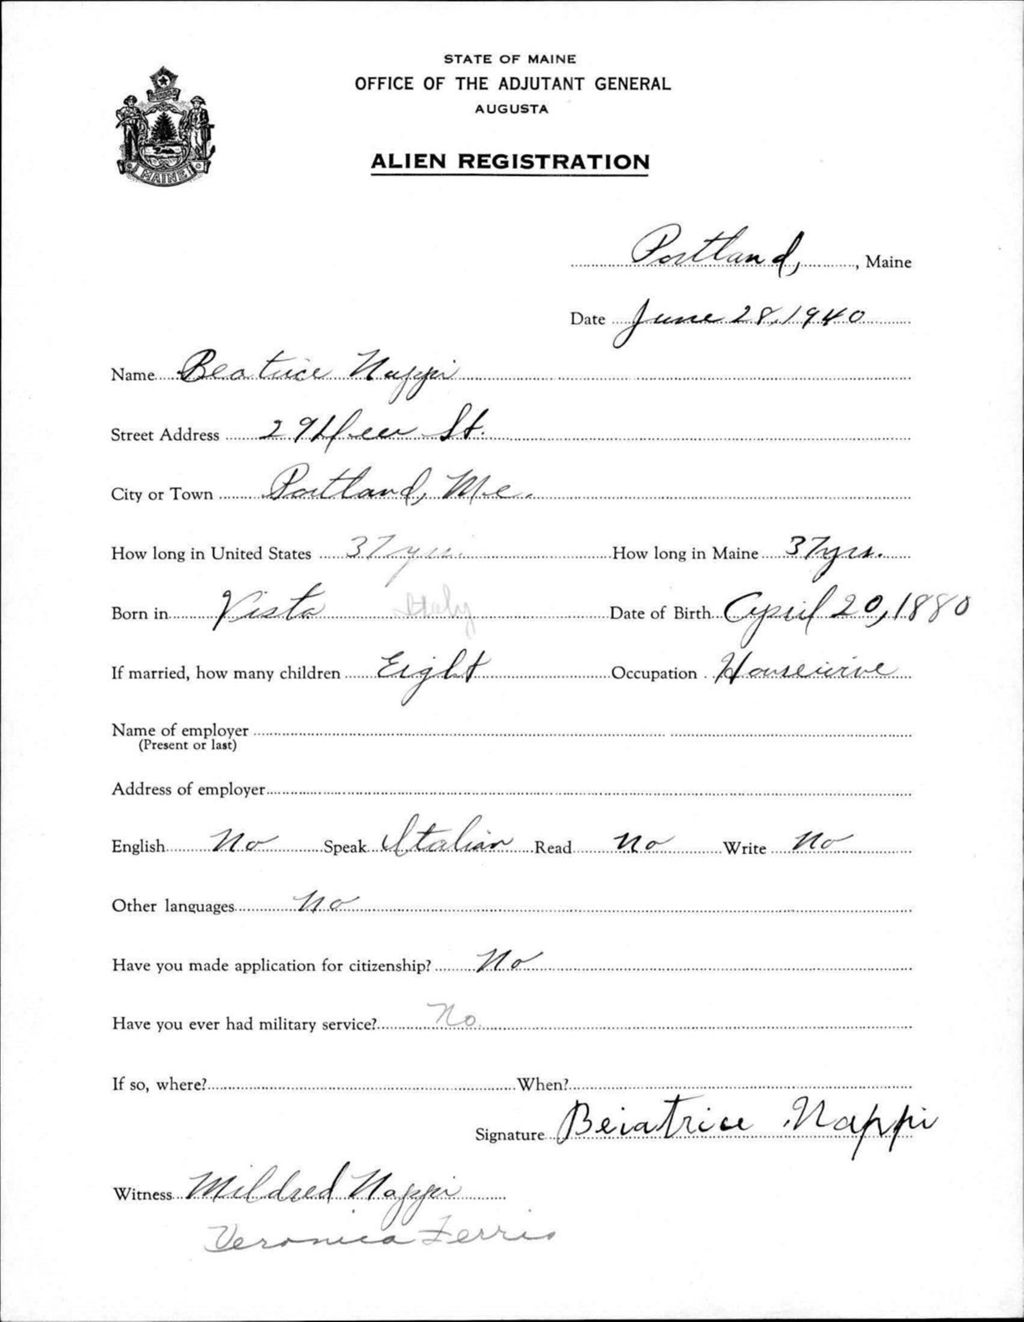 STATE OF MAINE
OFFICE OF THE ADJUTANT GENERAL
AUGUSTA
ALIEN REGISTRATION
MAINE
Portland, , Maine
Date June 28, 1940
Name Beatrice Nappi
Street Address 29 St.
City or Town Portland, Me.
How long in United States 37 yrs. How long in Maine 37 yrs.
Born in Vista Italy Date of Birth April 20, 1880
If married, how many children Eight Occupation Housewive
Name of employer
(Present or last)
Address of employer
English No Speak Italian Read No Write No
Other languages No
Have you made application for citizenship? No
Have you ever had military service? No
If so, where? When?
Signature Beiatrice Nappi
Witness Mildred Nappi
Veronica Ferris